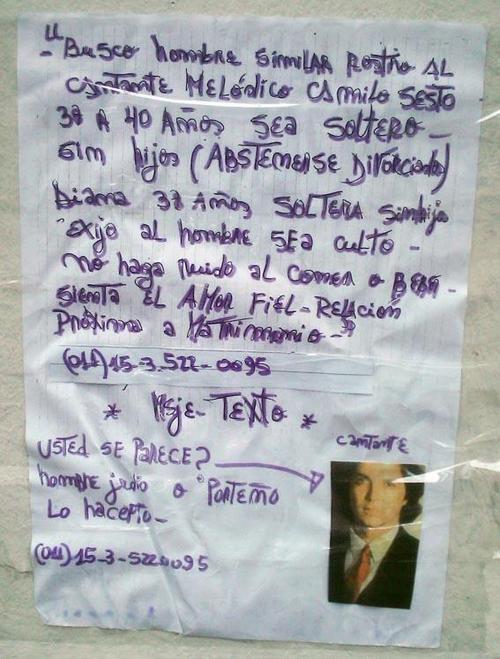 "Busco hombre similar rostro AL
cantante Melódico Camilo Sesto
38 A 40 Años SEA SOLTERO-
sin hijos (ABSTENERSE Divorciados)
Diana 38 Años SOLTERA sin hijo
exijo al hombre SEA culto -
no haga ruido al comer o BEBER -
sienta EL AMOR FIEL - RElación
Próxima a Matrimonio -"
(011) 15-3-522-0095
* Msje - TEXTO *
cantante
USTED SE PARECE?
hombre judio o "PORTEÑO
Lo hacepto -
(011) 15-3-5220095